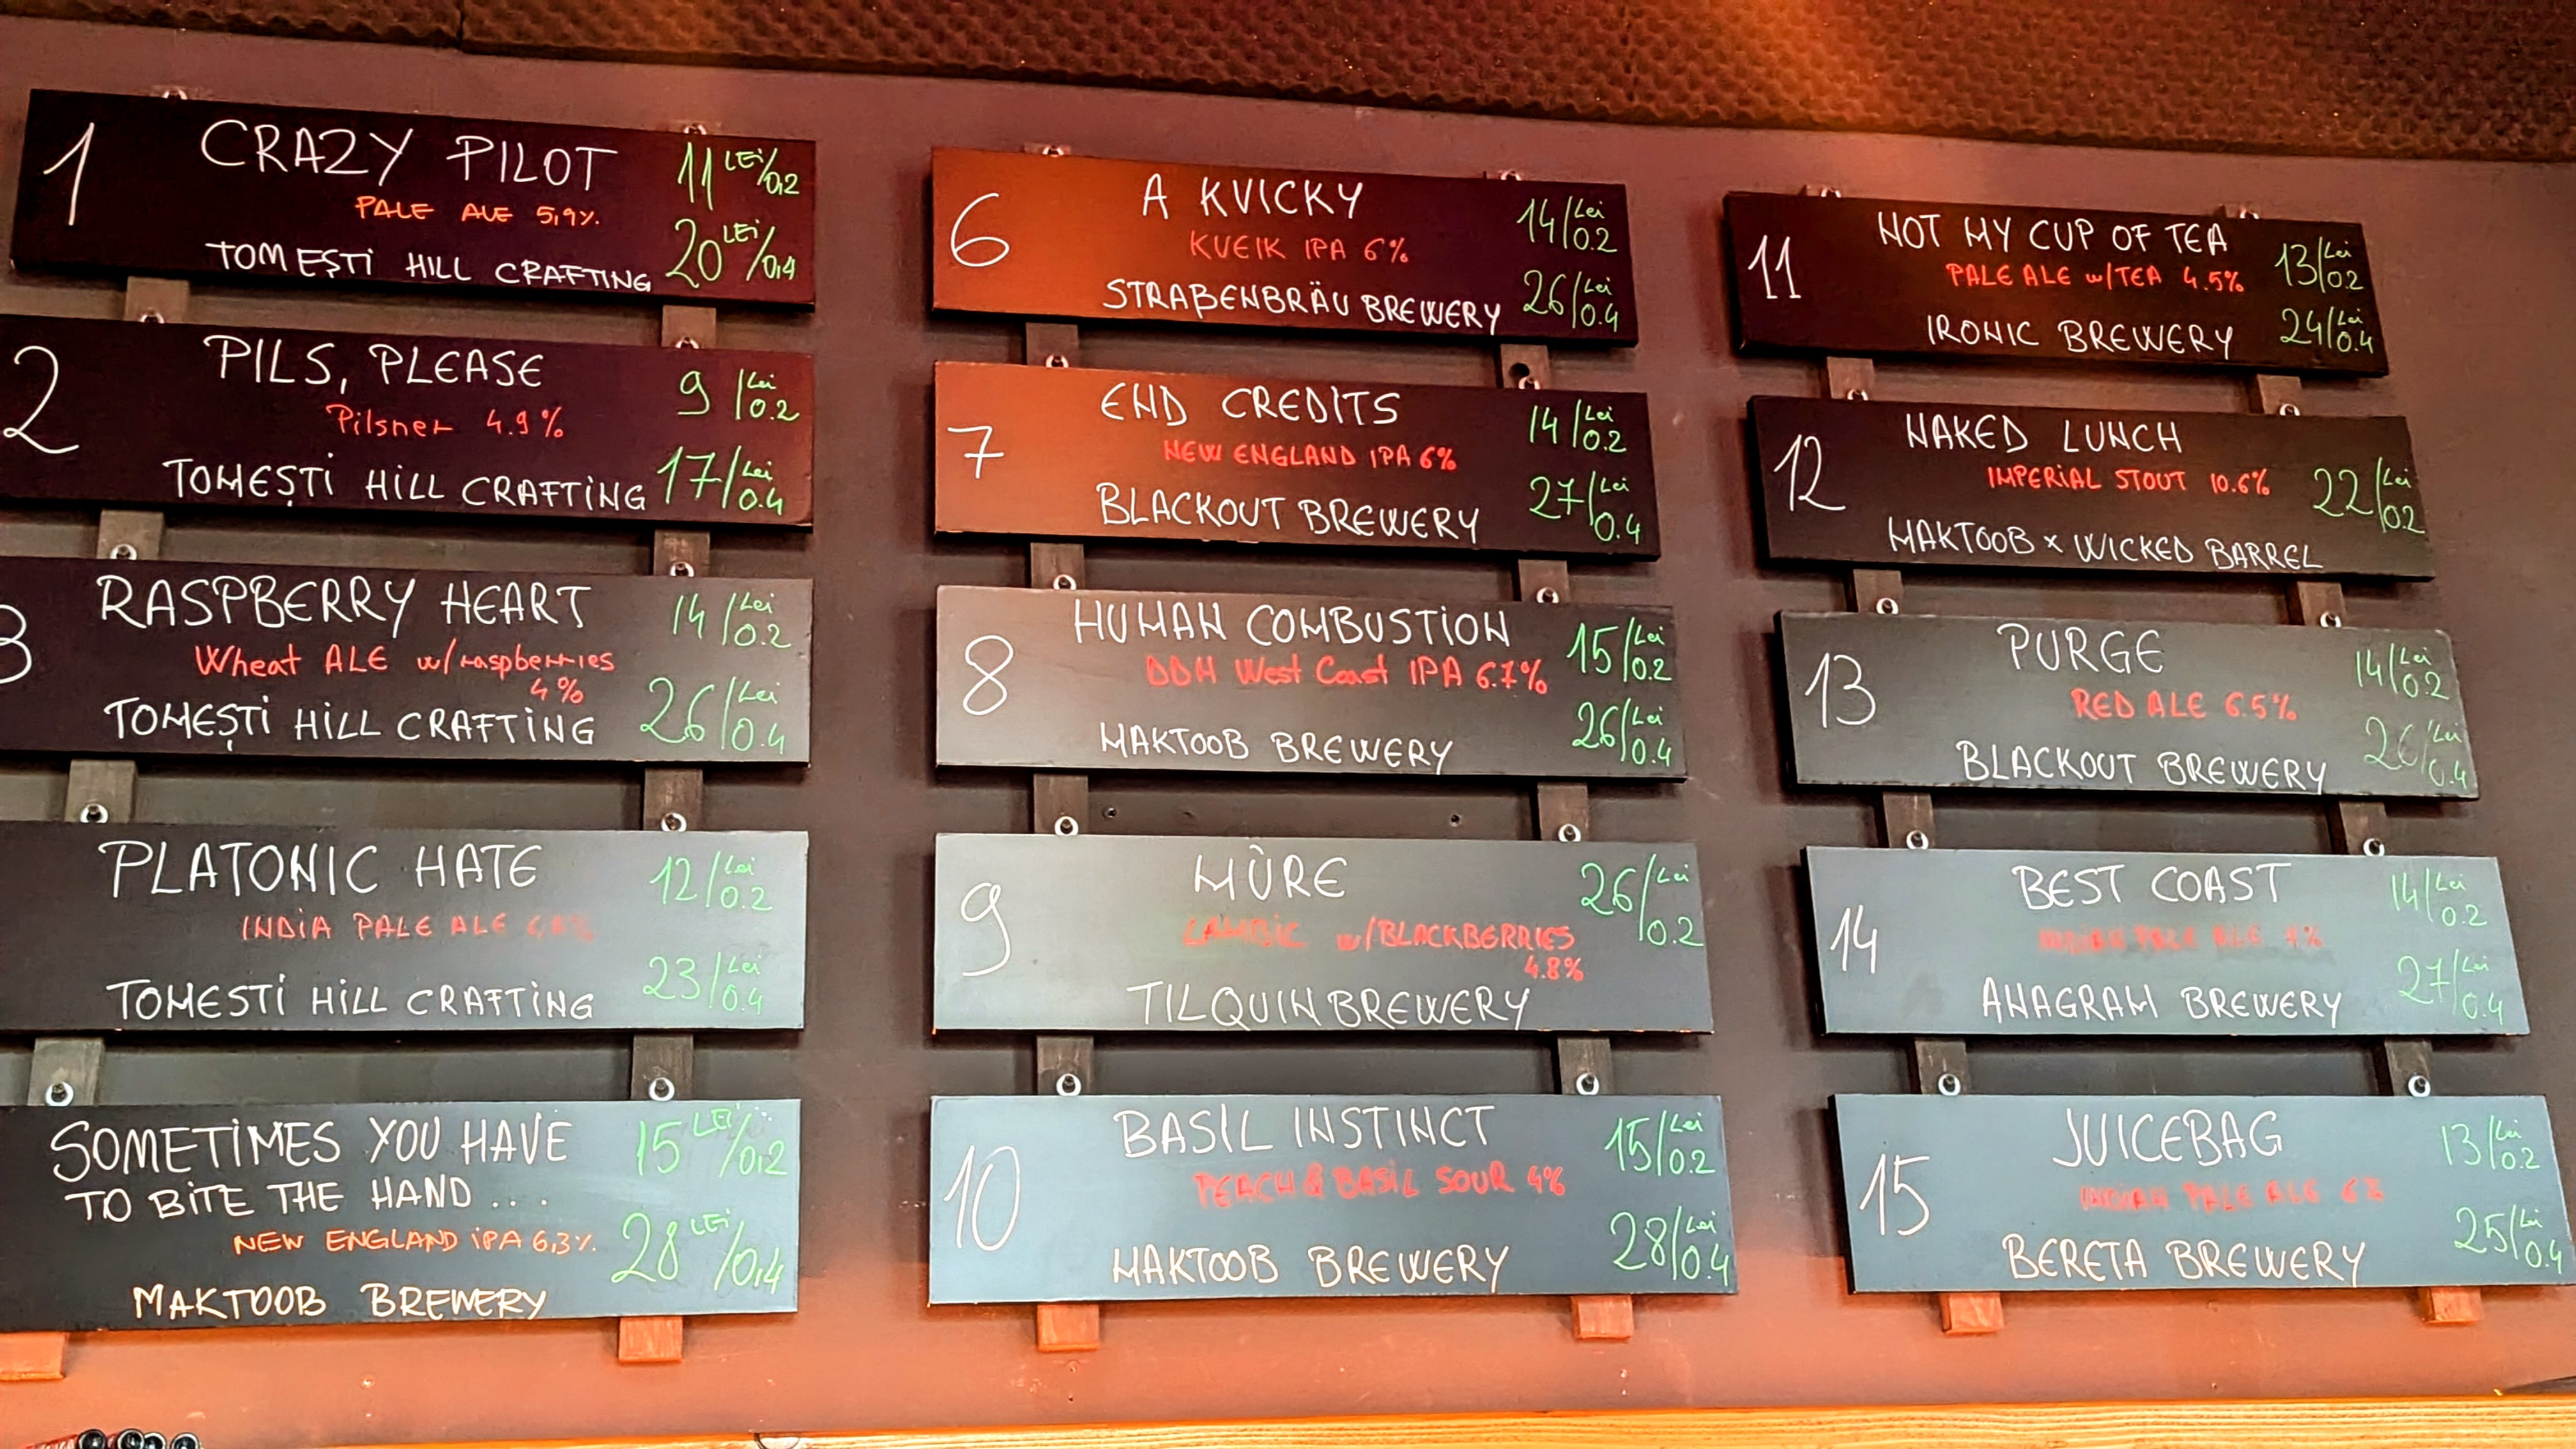 1
CRAZY PILOT
11 LEI/0,2
PALE ALE 5,9%
20 LEI/0,4
TOMEȘTI HILL CRAFTING
2
PILS, PLEASE
9 Lei/0.2
Pilsner 4.9%
17 Lei/0.4
TOMEȘTI HILL CRAFTING
3
RASPBERRY HEART
14 Lei/0.2
Wheat ALE w/raspberries
4%
26 Lei/0.4
TOMEȘTI HILL CRAFTING
PLATONIC HATE
12 Lei/0.2
INDIA PALE ALE
23 Lei/0.4
TOMESTI HILL CRAFTING
SOMETIMES YOU HAVE
15 LEI/0,2
TO BITE THE HAND...
NEW ENGLAND IPA 6,3%
28 LEI/0,4
MAKTOOB BREWERY
6
A KVICKY
14 Lei/0.2
KVEIK IPA 6%
26 Lei/0.4
STRAßENBRÄU BREWERY
7
END CREDITS
14 Lei/0.2
NEW ENGLAND IPA 6%
27 Lei/0.4
BLACKOUT BREWERY
8
HUMAN COMBUSTION
15 Lei/0.2
DDH West Coast IPA 6.7%
26 Lei/0.4
MAKTOOB BREWERY
9
MÛRE
26 Lei/0.2
LAMBIC w/BLACKBERRIES
4.8%
TILQUIN BREWERY
10
BASIL INSTINCT
15 Lei/0.2
PEACH & BASIL SOUR 4%
28 Lei/0.4
MAKTOOB BREWERY
11
NOT MY CUP OF TEA
13 Lei/0.2
PALE ALE w/TEA 4.5%
24 Lei/0.4
IRONIC BREWERY
12
NAKED LUNCH
IMPERIAL STOUT 10.6%
22 Lei/0.2
MAKTOOB x WICKED BARREL
13
PURGE
14 Lei/0.2
RED ALE 6.5%
26 Lei/0.4
BLACKOUT BREWERY
14
BEST COAST
14 Lei/0.2
PALE ALE
27 Lei/0.4
ANAGRAM BREWERY
15
JUICEBAG
13 Lei/0.2
INDIAN PALE ALE 6%
25 Lei/0.4
BERETA BREWERY